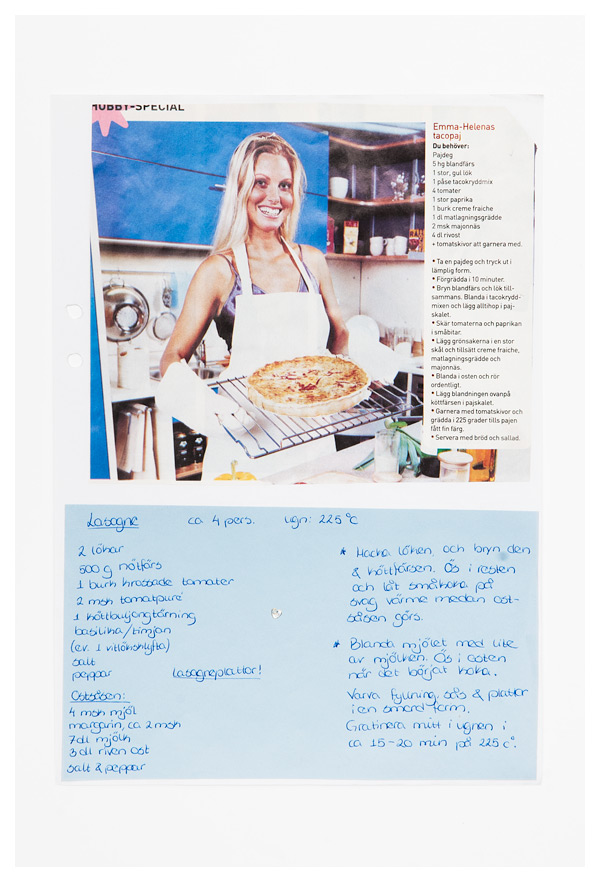 HOBBY-SPECIAL
Emma-Helenas
tacopaj
Du behöver:
Pajdeg
5 hg blandfärs
1 stor, gul lök
1 påse tacokryddmix
4 tomater
1 stor paprika
1 burk creme fraiche
1 dl matlagningsgrädde
2 msk majonnäs
4 dl rivost
+ tomatskivor att garnera med.
• Ta en pajdeg och tryck ut i
lämplig form.
• Förgrädda i 10 minuter.
• Bryn blandfärs och lök till-
sammans. Blanda i tacokrydd-
mixen och lägg alltihop i paj-
skalet.
• Skär tomaterna och paprikan
i småbitar.
• Lägg grönsakerna i en stor
skål och tillsätt creme fraiche,
matlagningsgrädde och
majonnäs.
• Blanda i osten och rör
ordentligt.
• Lägg blandningen ovanpå
köttfärsen i pajskalet.
• Garnera med tomatskivor och
grädda i 225 grader tills pajen
fått fin färg.
• Servera med bröd och sallad.
Lasagne ca 4 pers. ugn: 225°C
2 lökar
500 g nötfärs
1 burk krossade tomater
2 msk tomatpuré
1 köttbuljongtärning
basilika/timjan
(ev. 1 vitlöksklyfta)
salt
peppar lasagneplattor!
Ostsåsen:
4 msk mjöl
margarin, ca 2 msk
7 dl mjölk
3 dl riven ost
salt & peppar
* Hacka löken, och bryn den
& köttfärsen. Ös i resten
och låt småkoka på
svag värme medan ost-
såsen görs.
* Blanda mjölet med lite
av mjölken. Ös i osten
när det börjat koka.
Varva fyllning, sås & plattor
i en smord form.
Gratinera mitt i ugnen i
ca 15-20 min på 225 c°.